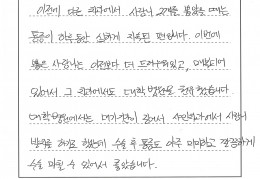 이전에 다른 치과에서 사랑니 2개를 뽑았을 때는
통증이 하루동안 심하게 지속된 편입니다. 이번에
뽑은 사랑니는 이전보다 더 드러누워있고, 매복되어
있어서 그 치과에서도 대학병원을 추천했습니다
대학병원에서는 대기가 길어서 사랑니
발치를 했는데 수술 후 통증도 아주 미미하고 깔끔하게
수술 마칠 수 있어서 좋았습니다.